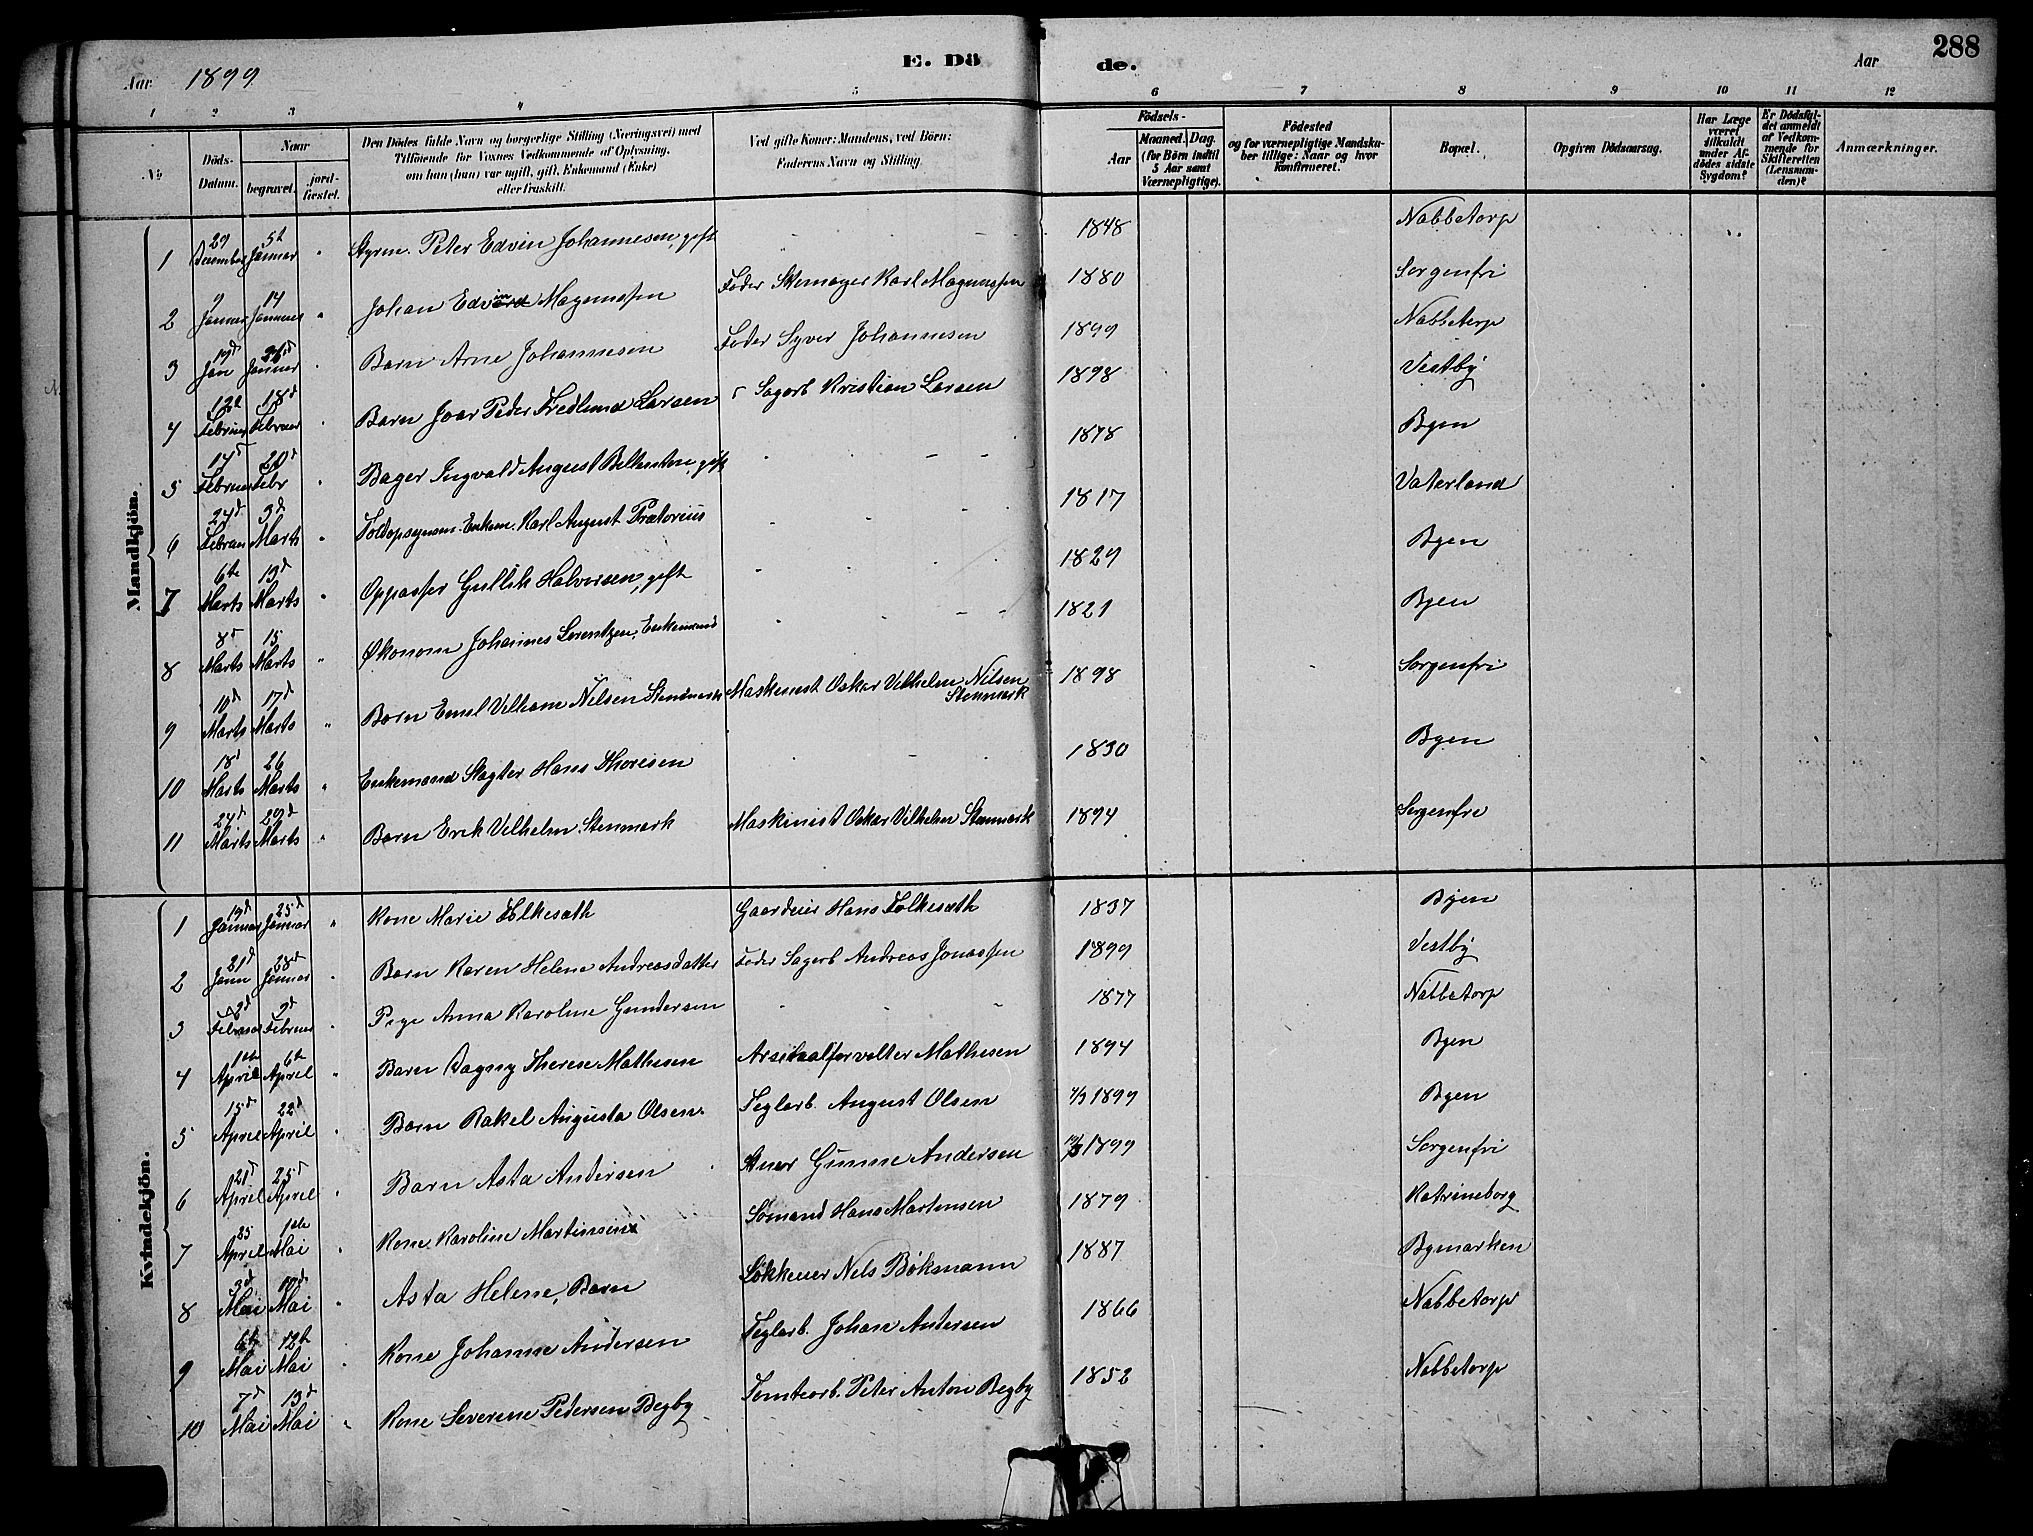 288
Aar 1899 E. Dö de. Aar
1 2 3 4 5 6 7 8 9 10 11 12
No. Döds-Datum. Naar begravet. jord-fæstet. Den Dödes fulde Navn og borgerlige Stilling (Næringsvei) med Tilföiende for Voxnes Vedkommende af Oplysning, om han (hun) var ugift, gift, Enkemand (Enke) eller fraskilt. Ved gifte Koner: Mandens, ved Börn: Faderens Navn og Stilling. Födsels- Aar Maaned. Dag. (for Börn indtil 5 Aar samt Værnepligtige). Födested og for værnepligtige Mandskaber tillige: Naar og hvor konfirmeret. Bopæl. Opgiven Dödsaarsag. Har Læge været tilkaldt under Afdödes sidste Sygdom? Er Dödsfaldet anmeldt af Vedkommende for Skifteretten (Lensmanden)? Anmærkninger.
Mandkjön.
1 29 December 5te Januar " Styrm. Peter Edvin Johannesen, gift 1848 Nabbetorp
2 Januar 14 Januar " Johan Edvin Magnussen Fader Skomager Karl Magnussen 1880 Sorgenfri
3 19d Jan Januar " Barn Arne Johannesen Fader Syver Johannesen 1899 Nabbetorp
4 12te Februar 18d Februar " Barn Joar Peder Fredlund Larsen " Sagarb Kristian Larsen 1898 Vestby
5 14d Februar 20d Febr " Bager Ingvald August gift 1878 Byen
6 24d Februar 3d Marts " Toldopsynsm. Enkem. Karl August Prætorius 1817 Vaterland
7 6te Marts 13d Marts " Oppasser Gullik Halvorsen, gift 1829 Byen
8 8d Marts 15 Marts " Økonom Johannes Lorentzen, Enkemand 1821 Byen
9 10d Marts 17d Marts " Barn Emil Vilham Nilsen Stenmark Maskinist Oskar Vilhelm Nilsen Stenmark 1898 Sorgenfri
10 18d Marts 26 Marts " Enkemand Slagter Hans Thoresen 1830 Byen
11 24d Marts 29d Marts " Barn Erik Vilhelm Stenmark Maskinist Oskar Vilhelm Stenmark 1894 Sorgenfri
Kvindekjön.
1 19d Januar 25d Januar " Kone Marie Folkesath Gaardeier Hans Folkesath 1837 Byen
2 21d Janu 28d Januar " Barn Karen Helene Andreasdatter Fader Sagarb Andreas Jonassen 1899 Vestby
3 Februar 9d Februar " Pige Anna Karoline Gundersen 1877 Nabbetorp
4 1ste April 6te April " Barn Dagny Therese Mathesen Arsenalforvalter Mathesen 1894 Byen
5 15d April 22d April " Barn Rakel Augusta Olsen Teglarb. August Olsen 1899 Byen
6 21d April 25d April " Barn Asta Andersen Gunne Andersen 1899 Sorgenfri
7 25 April 1ste Mai " Kone Karoline Martinsen Sømand Hans Martensen 1879 Katrineborg
8 3d Mai 10d Mai " Asta Helene, Barn Løkkeeier Nels Bøkmann 1887 Bymarken
9 6te Mai 12te Mai " Kone Johanne Andersen Teglarb. Johan Antersen 1866 Nabbetorp
10 7d Mai 13d Mai " Kone Severine Pedersen Begby Tomtearb. Peter Anton Begby 1852 Nabbetorp